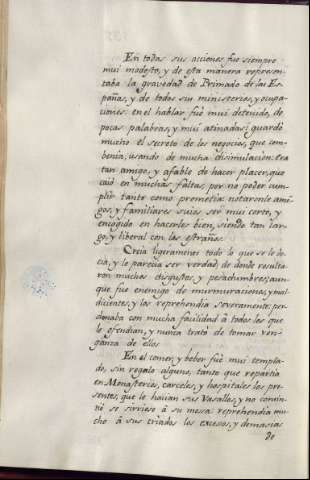 En todas sus acciones fue siempre
mui modesto, y de esta manera represen-
taba la gravedad de Primado de las Es-
pañas, y de todos sus ministerios, y ocupa-
ciones: en el hablar fué mui detenido, de
pocas palabras, y mui atinadas: guardó
mucho el secreto de los negocios, que com-
benia, usando de mucha disimulacion: era
tan amigo, y afable de hacer placer, que
caió en muchas faltas, por no poder cum-
plir tanto como prometia: notaronle ami-
gos, y familiares suios ser mui corto, y
encogido en hacerles bien, siendo tan lar-
go, y liberal con los estraños.
Creia ligeramente todo lo que se le de-
cia, y le parecia ser verdad, de donde resulta-
ron muchos disgustos, y pesadumbres; aun-
que fue enemigo de murmuraciones, y mal-
dicientes, y los reprehendia severamente; per-
donaba con mucha facilidad á todos los que
le ofendian, y nunca trató de tomar ven-
ganza de ellos.
En el comer, y beber fue mui templa-
do, sin regalo alguno, tanto que repartia
en Monasterios, carceles, y hospitales los pre-
sentes, que le hacian sus Vasallos, y no consin-
tió se sirviese á su mesa: reprehendia mu-
cho á sus criados los excesos, y demasias